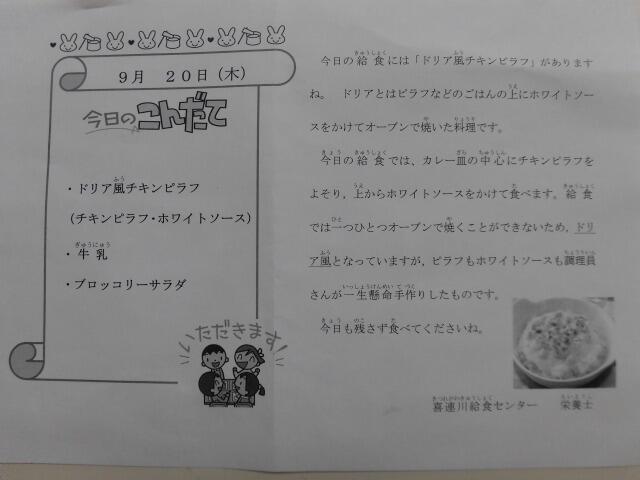 9月 20日(木)
今日のこんだて
・ドリア風チキンピラフ
(チキンピラフ・ホワイトソース)
・牛乳
・ブロッコリーサラダ
いただきます
今日の給食には「ドリア風チキンピラフ」があります
ね。 ドリアとはピラフなどのごはんの上にホワイトソー
スをかけてオーブンで焼いた料理です。
今日の給食では、カレー皿の中心にチキンピラフを
よそり,上からホワイトソースをかけて食べます。給食
では一つひとつオーブンで焼くことができないため,ドリ
ア風となっていますが,ピラフもホワイトソースも調理員
さんが一生懸命手作りしたものです。
今日も残さず食べてくださいね。
喜連川給食センター 栄養士